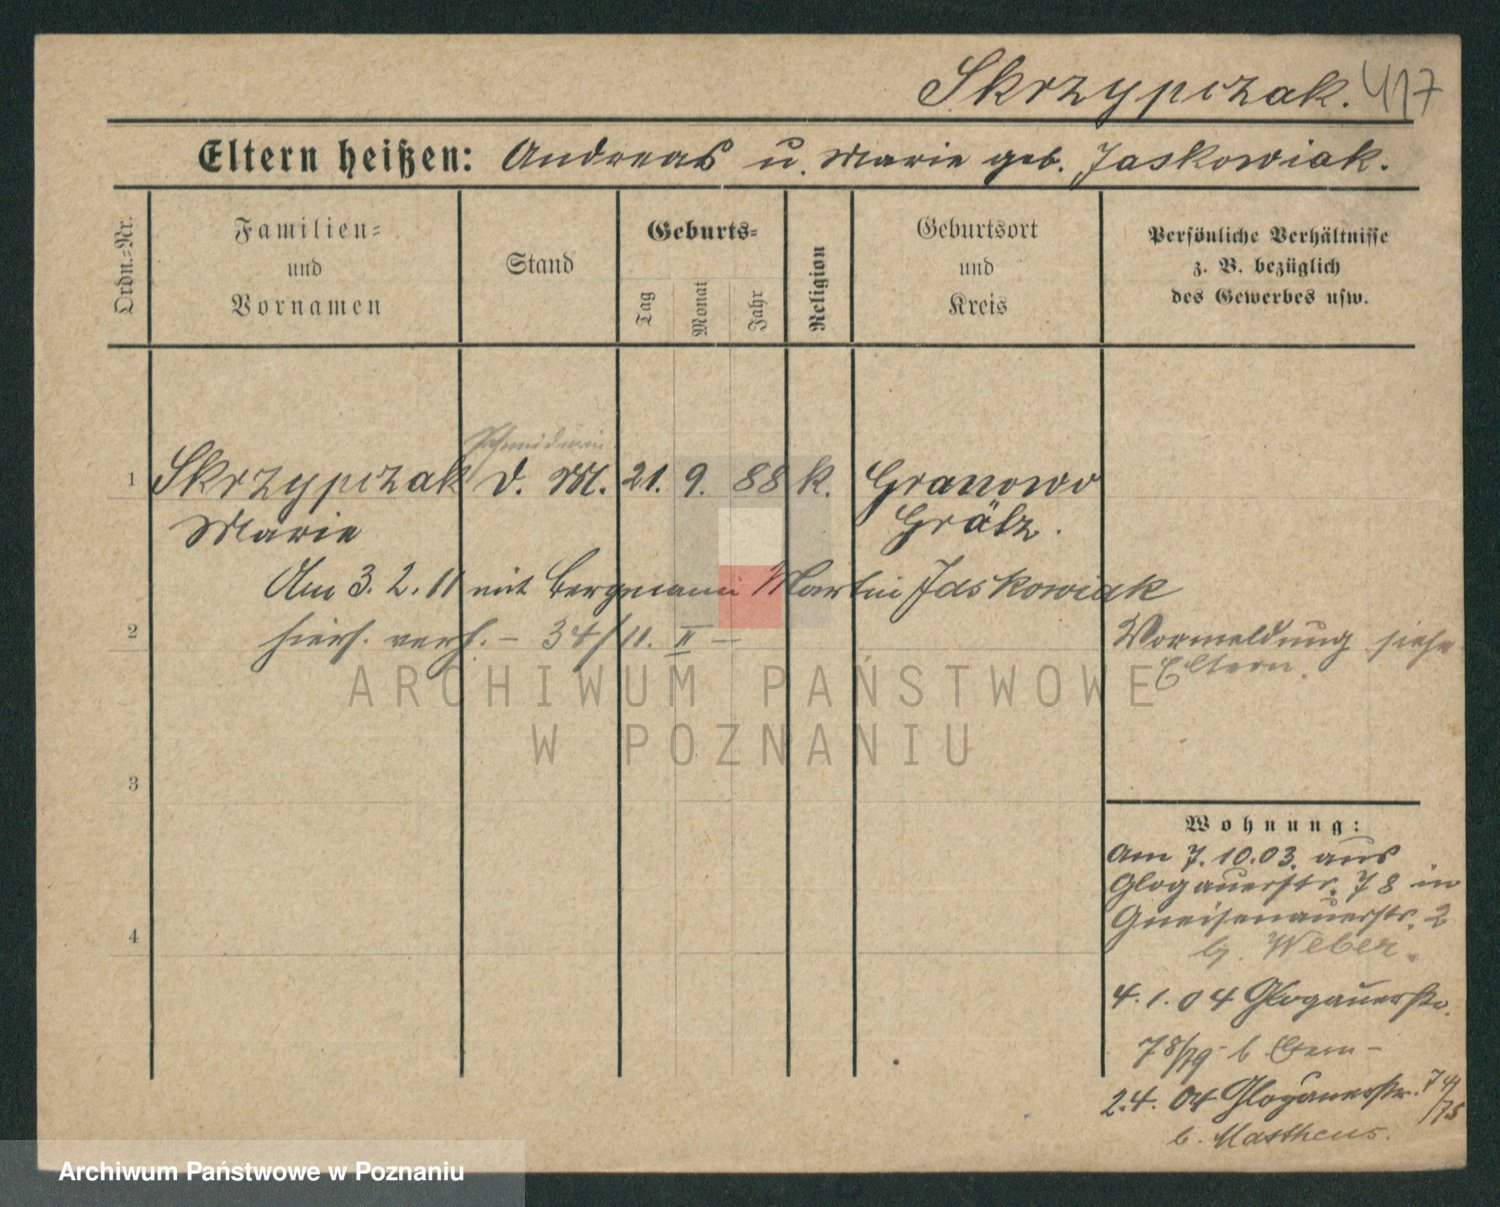 Skrzypczak. 417
Eltern heißen: Andreas u. Marie geb. Jaskowiak.
Ordn.-Nr.
Familien-
und
Vornamen
Stand
Geburts-
Tag
Monat
Jahr
Religion
Geburtsort
und
Kreis
Persönliche Verhältnisse
z. B. bezüglich
des Gewerbes usw.
Schneiderin
1 Skrzypczak d. M. 21. 9. 88 k. Granowo
Marie Grätz.
Am 3. 2. 11 mit Bergmann Martin Jaskowiak
2 hiers. verh. – 34/11. II –
Vormeldung siehe
Eltern.
ARCHIWUM PAŃSTWOWE
W POZNANIU
3
Wohnung:
Am 7. 10. 03. aus
Glogauerstr. 78 in
Gneisenauerstr. 2
b. Weber.
4
4. 1. 04 Glogauerstr.
78/79 b Eltern –
2. 4. 04 Glogauerstr. 74
/75
b. Mattheus.
Archiwum Państwowe w Poznaniu